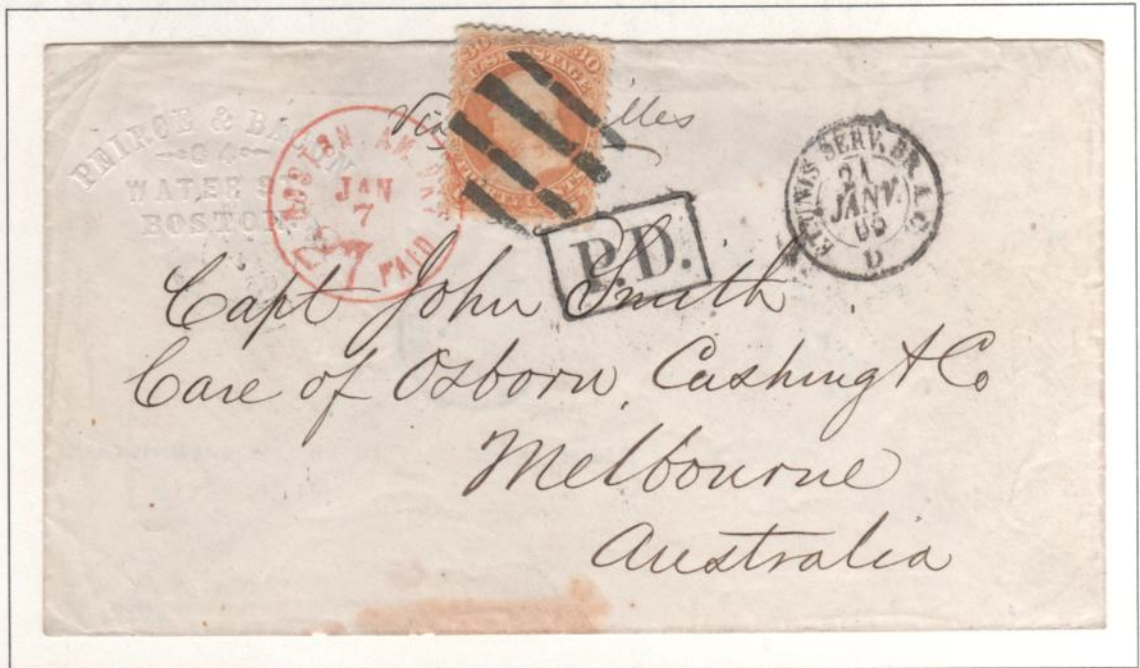 PEIRCE & BACON
84
WATER ST
BOSTON.
BOSTON AM. PKT.
JAN
7
PAID
30 30
U.S. POSTAGE
Via lles
ETUNIS SERV. BR. A.C.
21
JANV.
D
P.D.
Capt John Smith
Care of Osborn, Cushing & Co
Melbourne
Australia